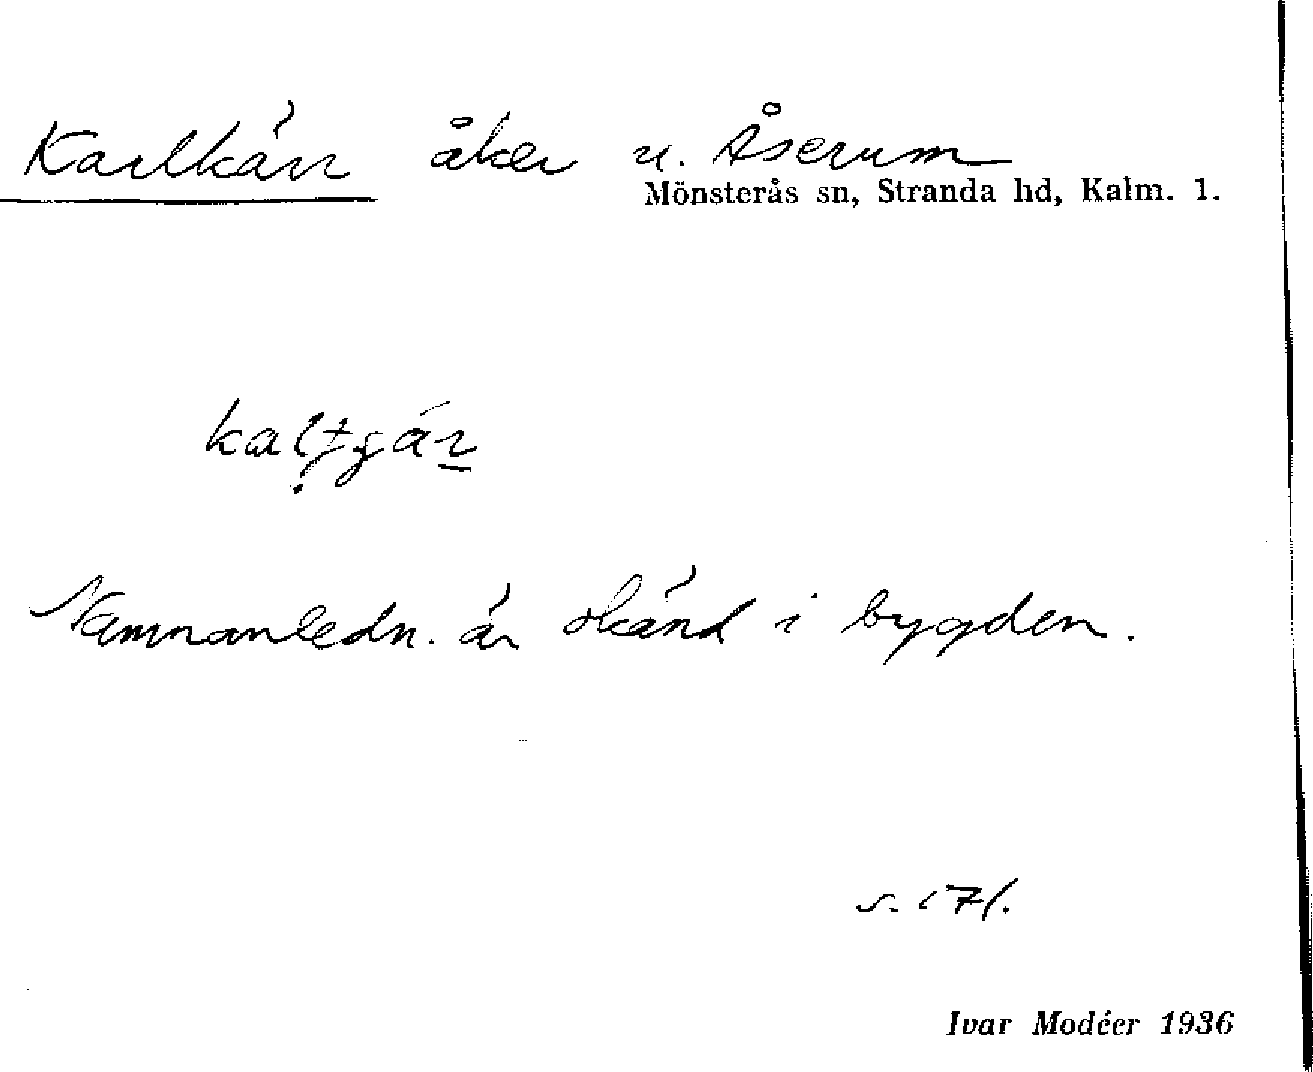 Karlkärr åker u. Åserum
Mönsterås sn, Stranda hd, Kalm. l.
Namnanledn. är okänd i bygden.
s. 171.
Ivar Modéer 1936